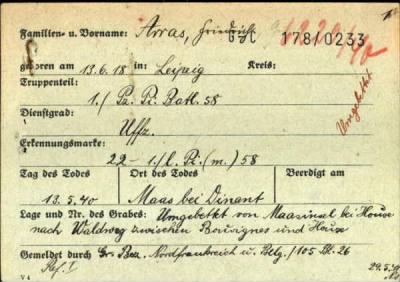 Familien- u. Vorname: Arras, Friedrich
178/0233
geboren am 13.6.18 in: Leipzig Kreis:
Truppenteil:
1./ Pz. Pi. Batl. 58
Umgebettet
Dienstgrad:
Uffz.
Erkennungsmarke:
22 - 1./l. Pi. (m.) 58
Tag des Todes Ort des Todes Beerdigt am
13.5.40 Maas bei Dinant
Lage und Nr. des Grabes: Umgebettet von Maasinsel bei Houxe
nach Waldweg zwischen Bouvignes und Houx
Gemeldet durch Gr. Bez. Nordfrankreich u. Belg./105 Bl. 26
V 4 Ref. I